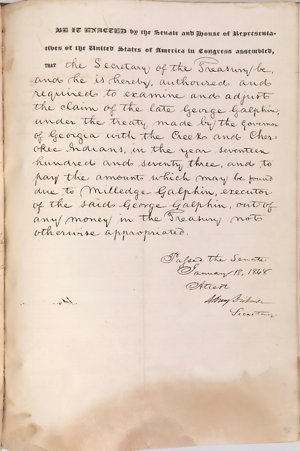 BE IT ENACTED by the Senate and House of Representa-
tives of the United States of America in Congress assembled,
THAT the Secretary of the Treasury be,
and he is hereby, authorized and
required to examine and adjust
the claim of the late George Galphin,
under the treaty made by the governor
of Georgia with the Creek and Cher-
okee Indians, in the year seventeen
hundred and seventy three, and to
pay the amount which may be found
due to Milledge Galphin, executor
of the said George Galphin, out of
any money in the Treasury not
otherwise appropriated.
Passed the Senate
January 18, 1848
Attest
Asbury Dickins
Secretary